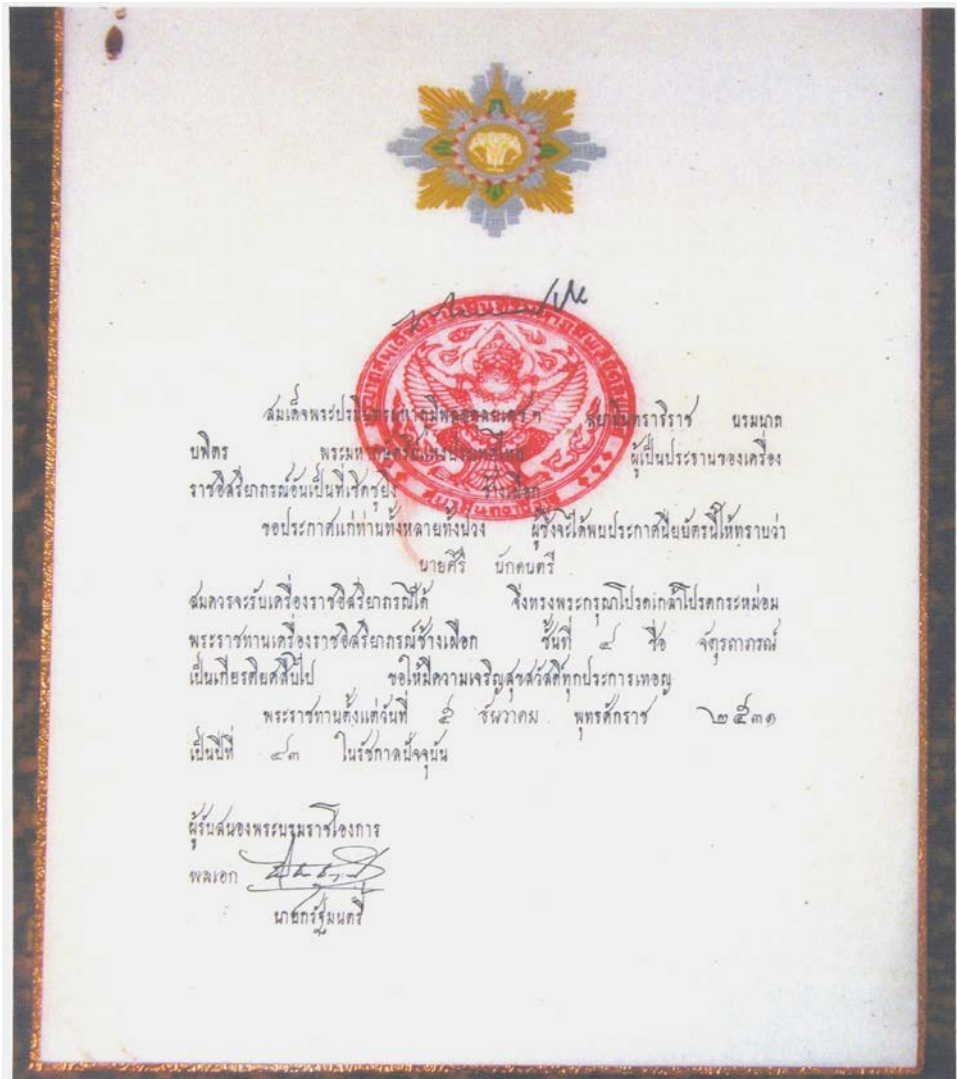 สมเด็จพระปรมินทรมหาภูมิพลอดุลยเดช ฯ สยามินทราธิราช บรมนาถ
บพิตร พระมหากษัตริย์แห่งประเทศไทย ผู้เป็นประธานของเครื่อง
ราชอิสริยาภรณ์อันเป็นที่เชิดชูยิ่ง ช้างเผือก
ขอประกาศแก่ท่านทั้งหลายทั้งปวง ผู้ซึ่งจะได้พบประกาศนียบัตรนี้ให้ทราบว่า
นายศิริ นักดนตรี
สมควรจะรับเครื่องราชอิสริยาภรณ์ได้ จึงทรงพระกรุณาโปรดเกล้าโปรดกระหม่อม
พระราชทานเครื่องราชอิสริยาภรณ์ช้างเผือก ชั้นที่ ๔ ชื่อ จัตุรถาภรณ์
เป็นเกียรติยศสืบไป ขอให้มีความเจริญสุขสวัสดิ์ทุกประการเทอญ
พระราชทานตั้งแต่วันที่ ๕ ธันวาคม พุทธศักราช ๒๕๓๑
เป็นปีที่ ๔๓ ในรัชกาลปัจจุบัน
ผู้รับสนองพระบรมราชโองการ
พลเอก
นายกรัฐมนตรี